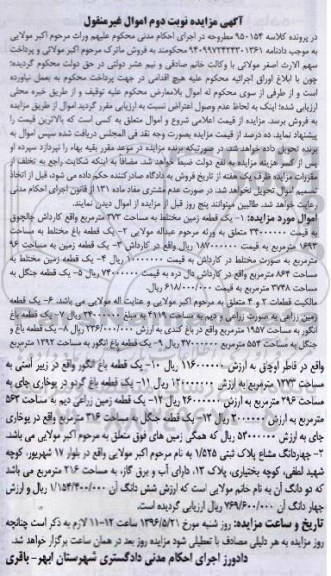 آگهی مزایده نوبت دوم اموال غیرمنقول
در پرونده کلاسه ۹۵۰۱۵۴ مطروحه در اجرای احکام مدنی محکوم علیهم وراث مرحوم اکبر مولایی
به موجب دادنامه ۹۴۰۹۹۷۲۴۲۴۳۰۱۳۶۱ محکومند به فروش ماترک مرحوم اکبر مولائی و پرداخت
سهم الارث اصغر مولائی با وکالت خانم صادقی و نیم عشر دولتی در حق دولت محکوم گردیده؛
چون با ابلاغ اوراق اجرائیه محکوم علیه هیچ اقدامی در جهت پرداخت محکوم به بعمل نیاورده
است و از طرفی از سوی محکوم له اموال بلامعارض محکوم علیه توقیف و از طریق خبره محلی
ارزیابی شده؛ اینک به لحاظ عدم وصول اعتراض نسبت به ارزیابی مقرر گردید اموال از طریق مزایده
به فروش برسد. مزایده از قیمت اعلامی شروع و اموال متعلق به کسی است که بالاترین قیمت را
پیشنهاد نماید. ده درصد از قیمت مزایده بصورت وجه نقد فی المجلس دریافت شده سپس اموال به
برنده تحویل داده خواهد شد. در صورتیکه برنده مزایده در موعد مقرر بقیه بهاء را نپردازد سپرده او
پس از کسر هزینه مزایده به نفع دولت ضبط خواهد شد. مضافاً به اینکه شکایت راجع به تخلف از
مقررات مزایده ظرف یک هفته از تاریخ فروش به دادگاه صادرکننده حکم داده می شود، قبل از اتخاذ
تصمیم اموال تحویل نخواهد شد. در صورت عدم مشتری مفاد ماده ۱۳۱ از قانون اجرای احکام مدنی
رعایت خواهد شد. طالبین میتوانند پنج روز قبل از مزایده از اموال دیدن نمایند.
اموال مورد مزایده: ۱- یک قطعه زمین مختلط به مساحت ۳۷۳ مترمربع واقع کارداش
به قیمت متعلق به ورثه مرحوم عبداله مولایی ۲- یک قطعه باغ مختلط به مساحت
۱۶۹۳ مترمربع به قیمت ۱۸۷۰۰۰۰۰۰ ریال واقع در کارداش ۳- یک قطعه زمین به مساحت ۹۶
مترمربع به صورت مختلط در کارداش به قیمت ۱۰۰۰۰۰۰۰ ریال ۴- یک قطعه زمین مختلط به
مساحت ۸۶۴ مترمربع واقع در کارداش دال دره به قیمت ۷۴۰۰۰۰۰۰ ریال ۵- یک قطعه جنگل به
مساحت ۳۷۴۸ مترمربع به قیمت ۶۱۸/۰۰۰/۰۰۰ ریال
مالکیت قطعات ۲ و ۴ متعلق به مرحوم اکبر مولایی و عنایت اله مولایی می باشد. ۶- یک قطعه
زمین زراعی به صورت زراعی و دیم به مساحت ۴۱۱۹ به مبلغ ریال ۷- یک قطعه باغ
انگور به مساحت ۱۹۵۷ مترمربع واقع در باغ کندی به ارزش ۲۳۶/۰۰۰/۰۰۰ ریال ۸- یک باغ و
جنگل به مساحت ۵۵۴ مترمربع ۳۷۰۰۰۰۰۰ ریال ۹- یک قطعه باغ انگور به مساحت ۱۲۹۲ مترمربع
واقع در قاطر اوچانی به ارزش ۱۱۶۰۰۰۰۰۰ ریال ۱۰- یک قطعه باغ انگور واقع در زیبر آستی به
مساحت ۱۲۷۳ مترمربع به ارزش ریال ۱۱- یک قطعه باغ گردو در پوخاری چای به
مساحت ۲۹۶ مترمربع به ارزش ۲۶۰۰۰۰۰۰ ریال ۱۲- یک قطعه زمین زراعی دیم به مساحت ۵۶۲
مترمربع به ارزش ریال ۱۳- یک قطعه جنگل به مساحت ۳۱۶ مترمربع واقع در یوخاری
چای به ارزش ۵۳۰۰۰۰۰۰ ریال که همگی زمین های فوق متعلق به مرحوم اکبر مولایی می باشد.
۲- چهاردانگ مشاع پلاک ثبتی ۱/۵۲۵ به نام مرحوم اکبر مولایی واقع در بلوار ۱۷ شهریور، کوچه
شهید لطفی، کوچه بختیاری، پلاک ۱۲، دارای آب و برق گاز، به مساحت ۲۱۶ مترمربع می باشد
که دو دانگ آن به نام خانم مولایی است که ارزش شش دانگ آن ۱/۱۵۴/۴۰۰/۰۰۰ ریال و ارزش
چهار دانگ آن ۷۶۹/۶۰۰/۰۰۰ ریال ارزیابی گردیده است.
تاریخ و ساعت مزایده: روز شنبه مورخ ۱۳۹۶/۵/۲۱ ساعت ۱۲-۱۱ لازم به ذکر است چنانچه
روز مزایده به هر دلیلی مصادف با تعطیلی شود مزایده روز بعد در همان ساعت برگزار خواهد شد.
دادورز اجرای احکام مدنی دادگستری شهرستان ابهر- باقری